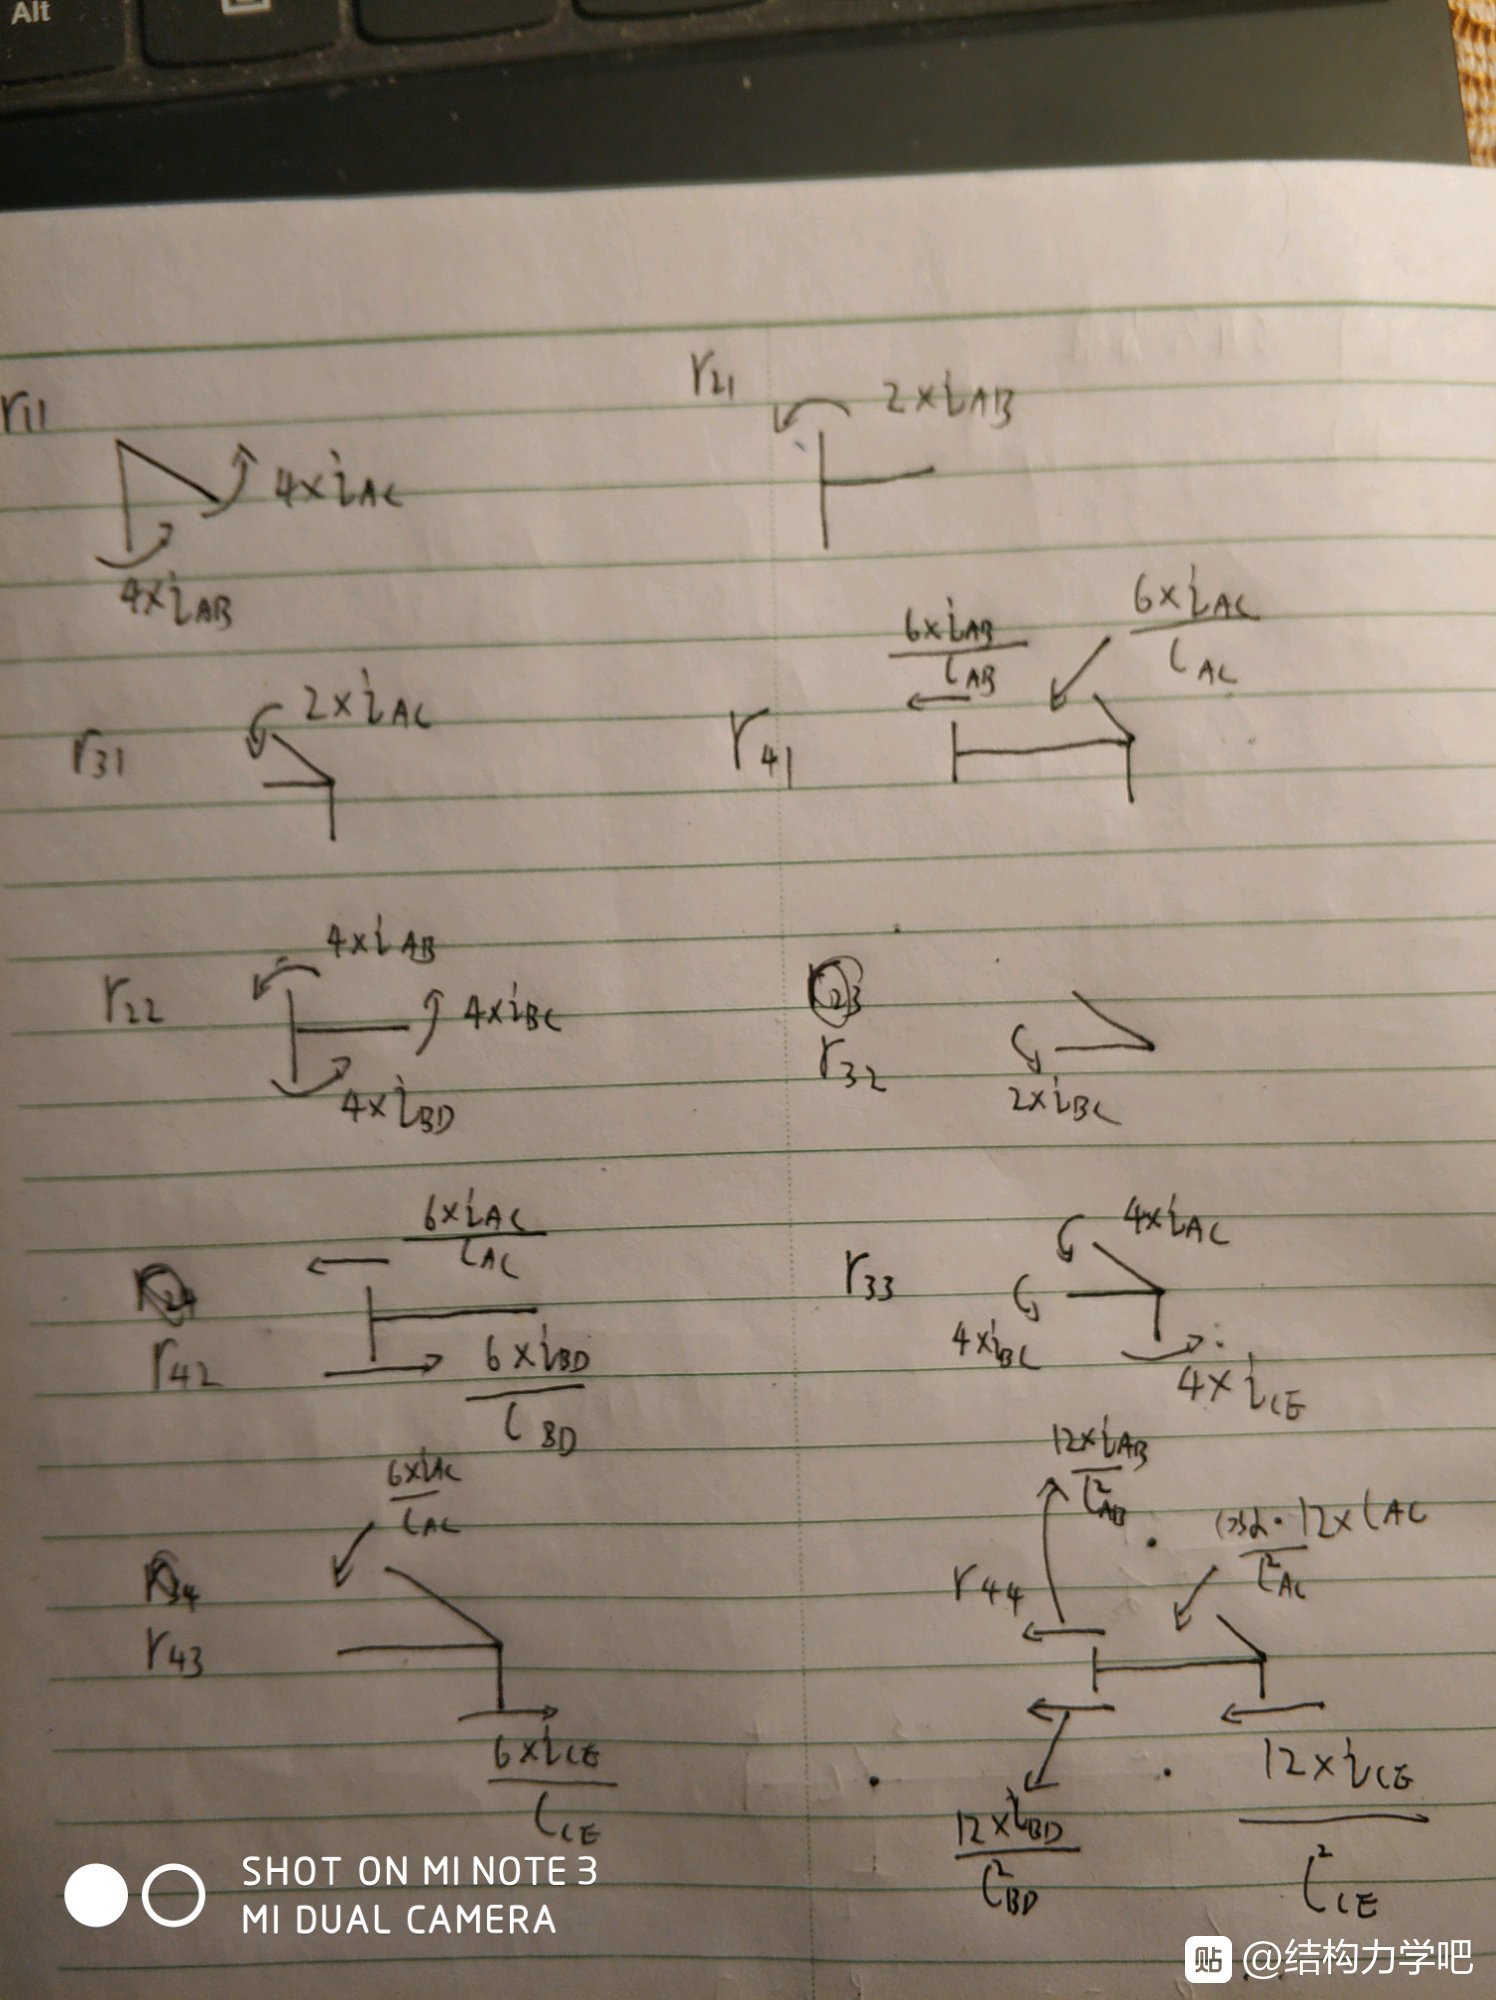 Alt
r11
4×iAC
4×iAB
r21
2×iAB
r31
2×iAC
r41
6×iAB
lAB
6×iAC
lAC
r22
4×iAB
4×iBC
4×iBD
r32
2×iBC
r42
6×iAC
lAC
6×iBD
lBD
r33
4×iAC
4×iBC
4×iCE
r43
6×iAC
lAC
6×iCE
lCE
r44
12×iAB
l²AB
cosα·12×lAC
l²AC
12×iBD
l²BD
12×iCE
l²CE
SHOT ON MI NOTE 3
MI DUAL CAMERA
贴 @结构力学吧